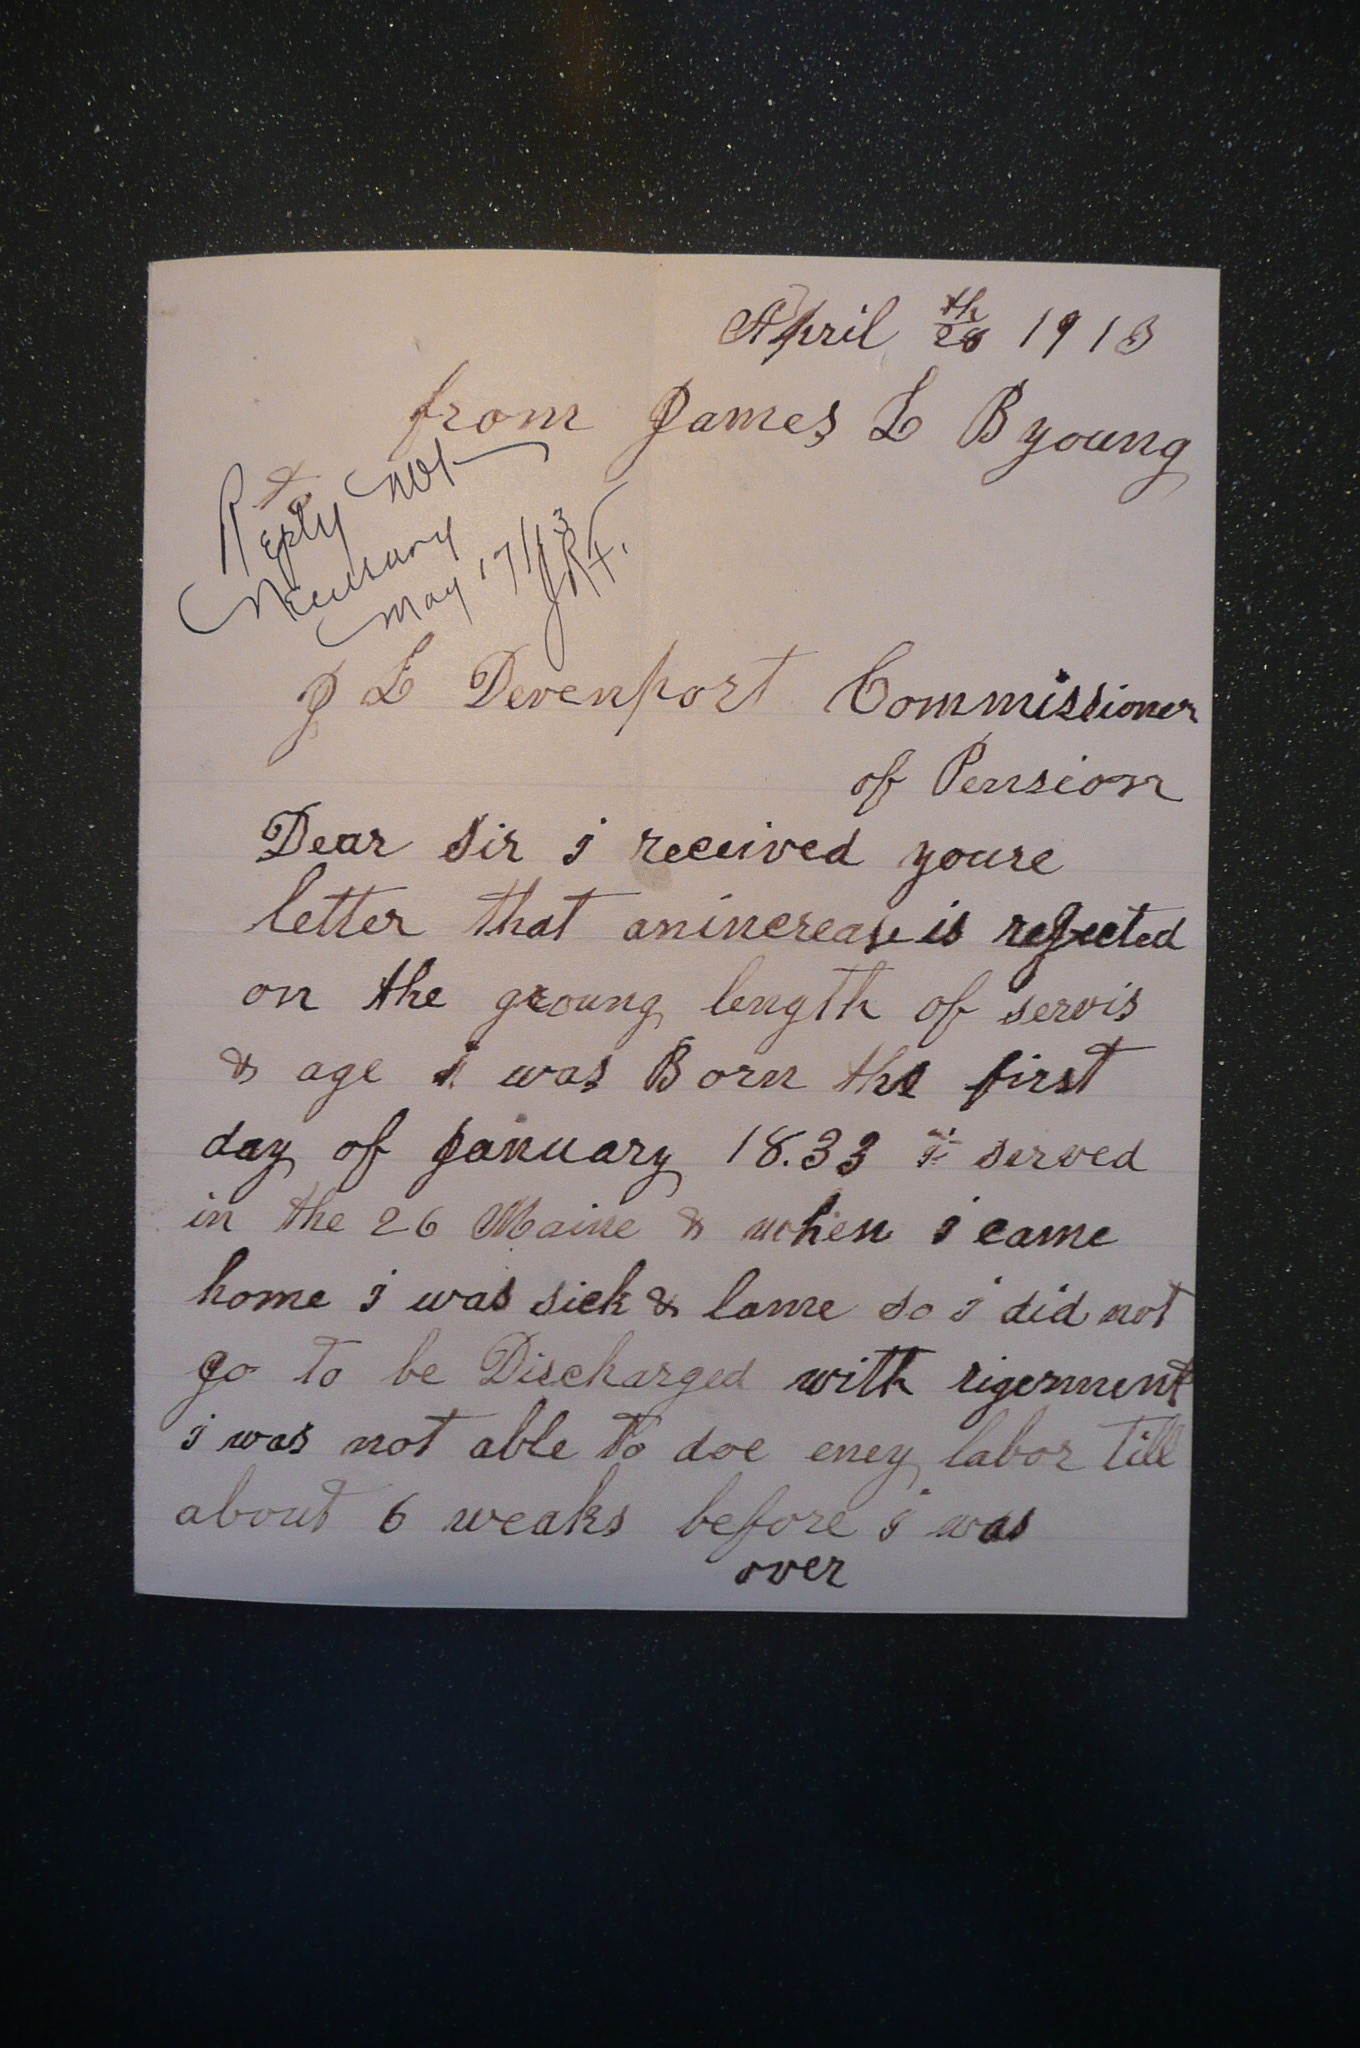 April 28th 1913
from James L B young
to
Reply not
necessary
May 17/13
J L Devenport Commissioner
of Pension
Dear sir i received youre
letter that anincrease is rejected
on the groung length of servis
& age i was Born the first
day of January 18.33 i served
in the 26 Maine & when i came
home i was sick & lame so i did not
go to be Discharged with rigernment
i was not able to doe eney labor till
about 6 weaks before i was
over